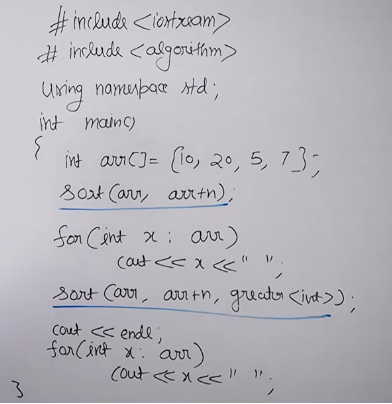 #include <iostream>
# include <algorithm>
Using namespace std;
int main()
{
int arr[]= {10, 20, 5, 7};
sort (arr, arr+n);
for (int x : arr)
cout << x << " ";
sort (arr, arr+n, greater <int>);
cout << endl;
for(int x: arr)
cout << x << " ";
}